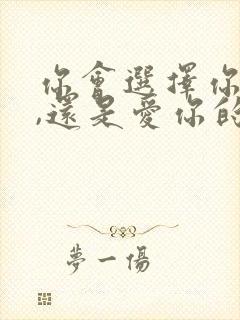 你會選擇你
,還是愛你的
夢一傷